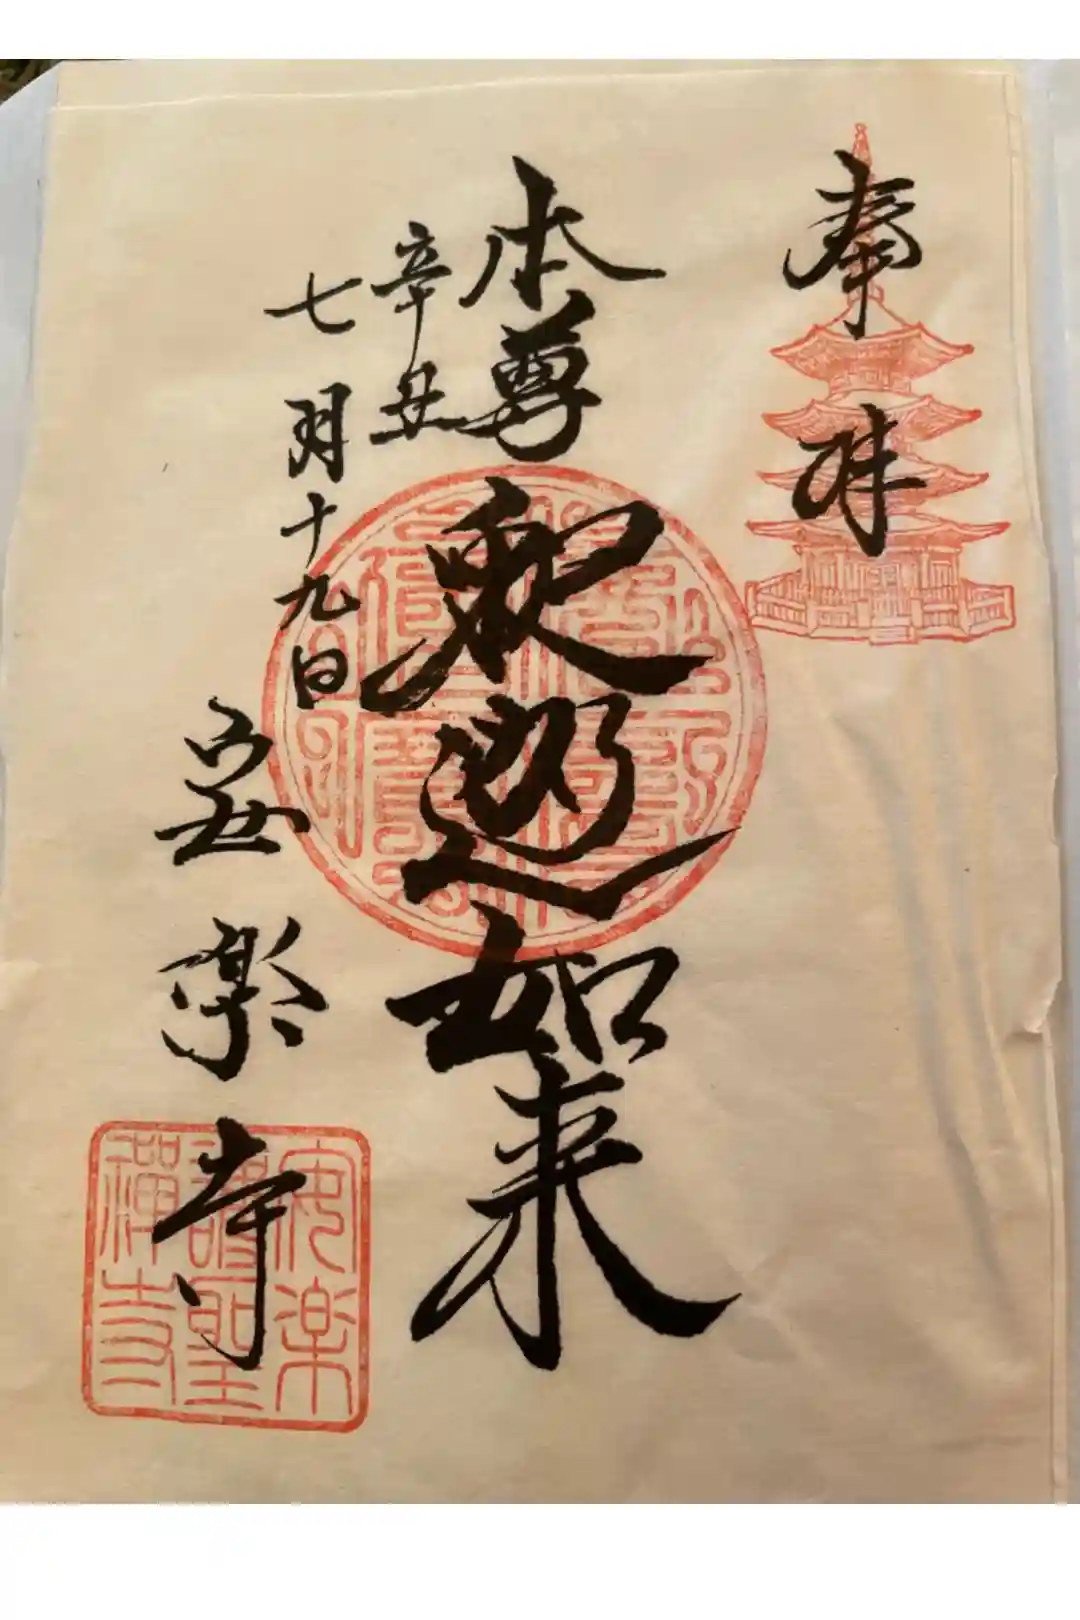 奉拝
本尊
釈迦如来
辛丑
七月十九日
安楽寺
安楽
護聖
禅寺